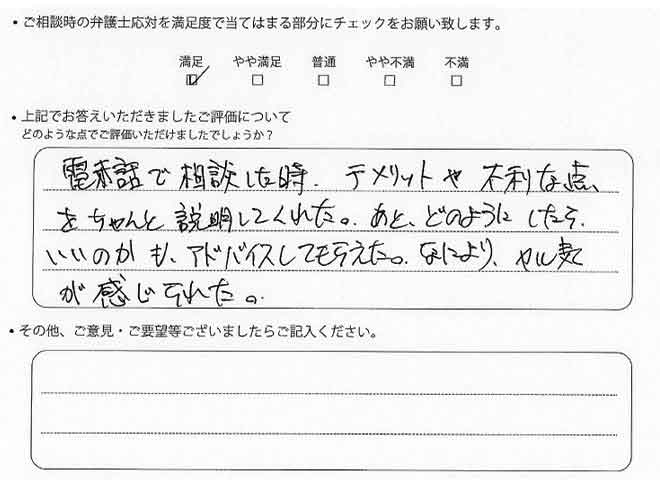 ・ご相談時の弁護士応対を満足度で当てはまる部分にチェックをお願い致します。
満足 やや満足 普通 やや不満 不満
・上記でお答えいただきましたご評価について
どのような点でご評価いただけましたでしょうか？
電話で相談した時、デメリットや不利な点、
をちゃんと説明してくれた。あと、どのようにしたら、
いいのかも、アドバイスしてもらえた。なにより、ヤル気
が感じられた。
・その他、ご意見・ご要望等ございましたらご記入ください。